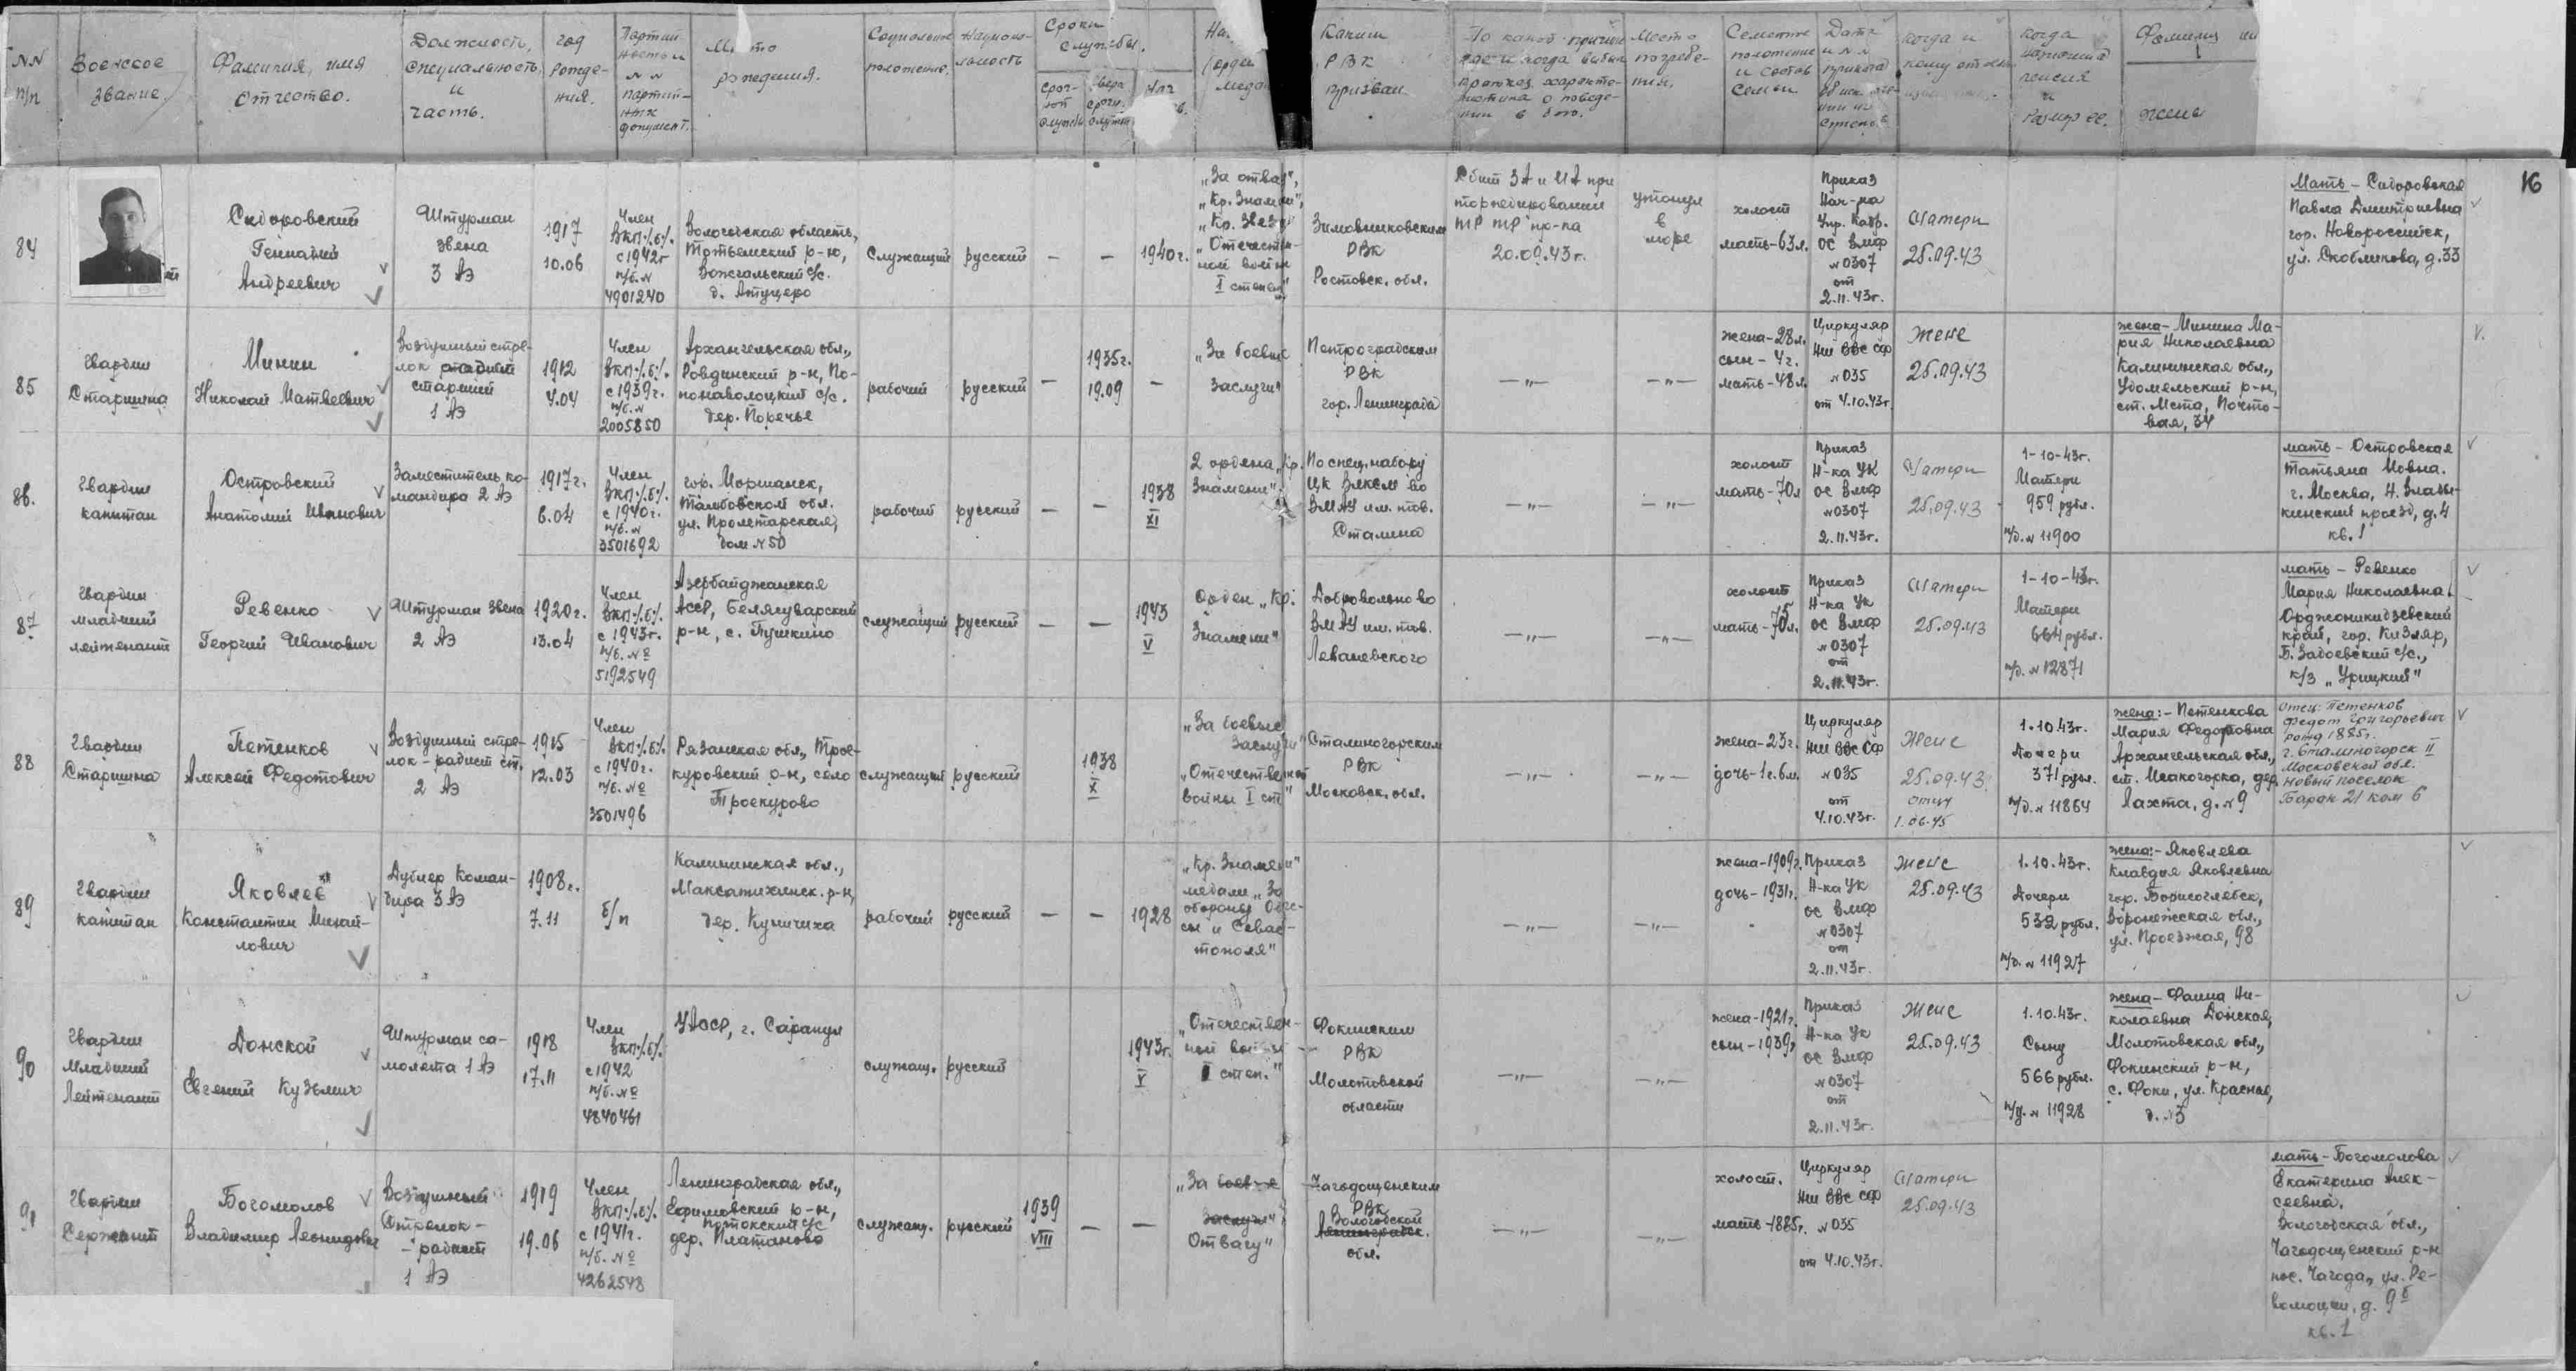 NN п/п
Военское звание.
Фамилия, имя отчество.
Должность, специальность и часть.
год рождения.
Партийность и NN партийных документ.
Место рождения.
Социальное положение.
Национальность
Сроки службы.
срочной службы
сверхсрочн. службы
Каким РВК призван
По какой причине где и когда выбыл
краткая характеристика о поведении в бою.
Место погребения.
Семейное положение и состав семьи
Дата и NN приказа
когда и кому
когда назначена пенсия и размер ее.
Фамилия
жены
16
84
Сидоровский
Геннадий
Андреевич
Штурман
звена
3 АЭ
1917
10.06
Член
ВКП/б/.
с 1942г
п/б. N
4901240
Вологодская область,
Тотьемский р-н,
Вожгальский с/с.
д. Актуцеро
Служащий
русский
—
—
1940г.
„За отвагу",
„Кр. Знамени",
„Кр. Звезд
„Отечествен-
ной войны
I степен"
Зимовниковским
РВК
Ростовск. обл.
Сбит ЗА и ИА при
торпедировании
ТР пр-ка
20.09.43г.
утонул
в
море
холост
мать-63л.
Приказ
Нач-ка
Упр. Кадр.
ОС ВМФ
N0307
от
2.11.43г.
Матери
25.09.43
Мать - Сидоровская
Павла Дмитриевна
гор. Новороссийск,
ул. Скобликова, д.33
85
Гвардии
Старшина
Минин
Николай Матвеевич
Воздушный стре-
лок
старший
1 АЭ
1912
4.04
Член
ВКП/б/.
с 1939г.
п/б. N
2005850
Архангельская обл.,
Ровдинский р-н, По-
понаволоцкий с/с.
дер. Поречье
рабочий
русский
—
1935г.
19.09
—
„За боевые
заслуги"
Петроградским
РВК
гор. Ленинграда
—„—
—„—
жена-28л.
сын - 4г.
мать-48л.
Циркуляр
НШ ВВС СФ
N035
от 4.10.43г.
Жене
25.09.43
жена - Минина Ма-
рия Николаевна
Калининская обл.,
Удомельский р-н,
ст. Мста, Почто-
вая, 34
86.
Гвардии
капитан
Островский
Анатолий Иванович
Заместитель ко-
мандира 2 АЭ
1917г.
6.04
Член
ВКП/б/.
с 1940г.
п/б. N
3501692
гор. Моршанск,
Тамбовской обл.
ул. Пролетарская,
дом N50
рабочий
русский
—
—
1938
XI
2 ордена „Кр.
Знамени"
По спец. набору
ЦК ВЛКСМ во
ВМАУ им. тов.
Сталина
—„—
—„—
холост
мать-70л
Приказ
Н-ка УК
ОС ВМФ
N0307
2.11.43г.
Матери
25.09.43
1-10-43г.
Матери
959 рубл.
п/д. N 11900
мать - Островская
Татьяна Иовна.
г. Москва, Н. Влады-
кинский проезд, д.4
кв. 1
87
Гвардии
младший
лейтенант
Ревенко
Георгий Иванович
Штурман звена
2 АЭ
1920г.
13.04
Член
ВКП/б/.
с 1943г.
п/б. №
5192549
Азербайджанская
АССР, Белясуварский
р-н, с. Пушкино
служащий
русский
—
—
1943
V
Орден „Кр.
Знамени"
Добровольно во
ВМАУ им. тов.
Леваневского
—„—
—„—
холост
мать-70л.
Приказ
Н-ка УК
ОС ВМФ
N0307
от
2.11.43г.
Матери
25.09.43
1-10-43г.
Матери
664 рубл.
п/д. N 12871
мать - Ревенко
Мария Николаевна.
Орджоникидзевский
край, гор. Кизляр,
Б. Задоевский с/с.,
к/з „Урицкий"
88
Гвардии
Старшина
Петенков
Алексей Федотович
Воздушный стре-
лок-радист ст.
2 АЭ
1915
12.03
Член
ВКП/б/.
с 1940г.
п/б. №
3501496
Рязанская обл., Трое-
куровский р-н, село
Троекурово
служащий
русский
1938
X
„За боевые
Заслуги"
„Отечественной
войны I ст"
Сталиногорским
РВК
Московск. обл.
—„—
—„—
жена-23г.
дочь-1г.6м.
Циркуляр
НШ ВВС СФ
N035
от
4.10.43г.
Жене
25.09.43
отцу
1.06.45
1.10.43г.
Дочери
371 рубл.
п/д. N 11864
жена:- Петенкова
Мария Федоровна
Архангельская обл.,
ст. Исакогорка, дер.
Лахта, д. N9
Отец: Петенков
Федот Григорьевич
рожд 1885г.
г. Сталиногорск II
Московской обл.
Новый поселок
Барак 21 ком 6
89
Гвардии
капитан
Яковлев
Константин Михай-
лович
Дублер Коман-
дира 3 АЭ
1908г.
7.11
б/п
Калининская обл.,
Максатихинск. р-н,
дер. Куничиха
рабочий
русский
—
—
1928
„Кр. Знамени"
медали „За
обороны Одес-
сы и Севас-
тополя"
—„—
—„—
жена-1909г.
дочь-1931г.
Приказ
Н-ка УК
ОС ВМФ
N0307
от
2.11.43г.
Жене
25.09.43
1.10.43г.
Дочери
532 рубл.
п/д. N 11927
жена:- Яковлева
Клавдия Яковлевна
гор. Борисоглебск,
Воронежская обл.,
ул. Проезжая, 98
90
Гвардии
Младший
Лейтенант
Донской
Евгений Кузьмич
Штурман са-
молета 1 АЭ
1918
17.11
Член
ВКП/б/.
с 1942
п/б. №
4840461
УАССР, г. Сарапул
служащ.
русский
1943г.
V
„Отечествен-
ной войны
I степ."
Фокинским
РВК
Молотовской
области
—„—
—„—
жена-1921г.
сын-1939г.
Приказ
Н-ка УК
ОС ВМФ
N0307
от
2.11.43г.
Жене
25.09.43
1.10.43г.
Сыну
566 рубл.
п/д. N 11928
жена - Фаина Ни-
колаевна Донская,
Молотовская обл.,
Фокинский р-н,
с. Фоки, ул. Красная,
д. N3
91
Гвардии
Сержант
Богомолов
Владимир Леонидович
Воздушный
Стрелок-
-радист
1 АЭ
1919
19.06
Член
ВКП/б/.
с 1941г.
п/б. №
4262548
Ленинградская обл.,
Ефимовский р-н,
дер. Платаново
служащ.
русский
1939
VIII
—
—
„За боевые
Заслуги"
Отвагу"
Чагодощенским
РВК
Вологодской
Ленинградск.
обл.
—„—
—„—
холост.
мать-1885г.
Циркуляр
НШ ВВС СФ
N035
от 4.10.43г.
Матери
25.09.43
мать - Богомолова
Екатерина Алек-
сеевна.
Вологодская обл.,
Чагодощенский р-н
пос. Чагода, ул. Ре-
волюции, д. 9
кв. 1